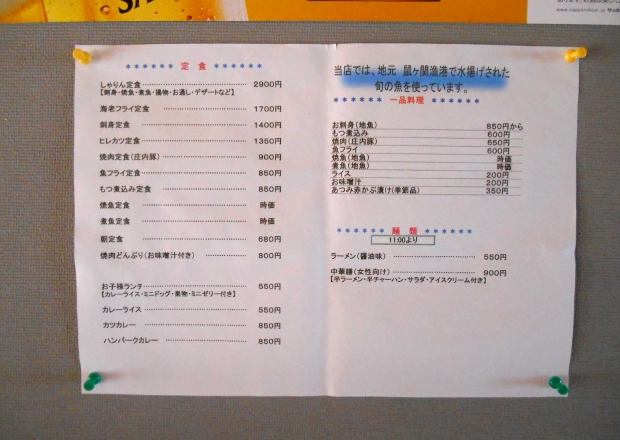 ＊＊＊＊＊＊ 定 食 ＊＊＊＊＊＊
しゃりん定食 2900円
【刺身・焼魚・煮魚・揚物・お通し・デザートなど】
海老フライ定食 1700円
刺身定食 1400円
ヒレカツ定食 1350円
焼肉定食(庄内豚) 900円
魚フライ定食 850円
もつ煮込み定食 850円
焼魚定食 時価
煮魚定食 時価
朝定食 680円
焼肉どんぶり(お味噌汁付き) 800円
お子様ランチ 550円
【カレーライス・ミニドッグ・果物・ミニゼリー付き】
カレーライス 550円
カツカレー 850円
ハンバークカレー 850円
当店では、地元 鼠ヶ関漁港で水揚げされた
旬の魚を使っています。
＊＊＊＊＊＊ 一品料理 ＊＊＊＊＊＊
お刺身(地魚) 850円から
もつ煮込み 600円
焼肉(庄内豚) 650円
魚フライ 600円
焼魚(地魚) 時価
煮魚(地魚) 時価
ライス 200円
お味噌汁 200円
あつみ赤かぶ漬け(季節品) 350円
＊＊＊＊＊＊ 麺 類 ＊＊＊＊＊＊
11:00より
ラーメン(醤油味) 550円
中華膳(女性向け) 900円
【半ラーメン・半チャーハン・サラダ・アイスクリーム付き】